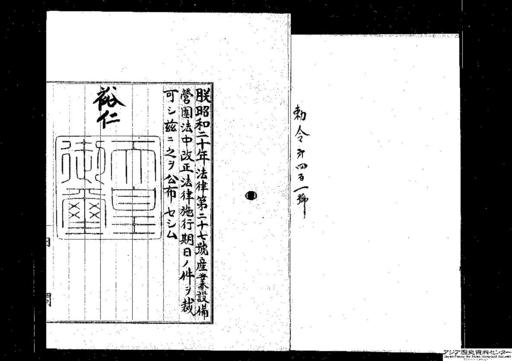 勅令第四百一號
朕昭和二十年法律第二十七號産業設備
營團法中改正法律施行期日ノ件ヲ裁
可シ茲ニ之ヲ公布セシム
裕仁
天皇
御璽
内閣
アジア歴史資料センター